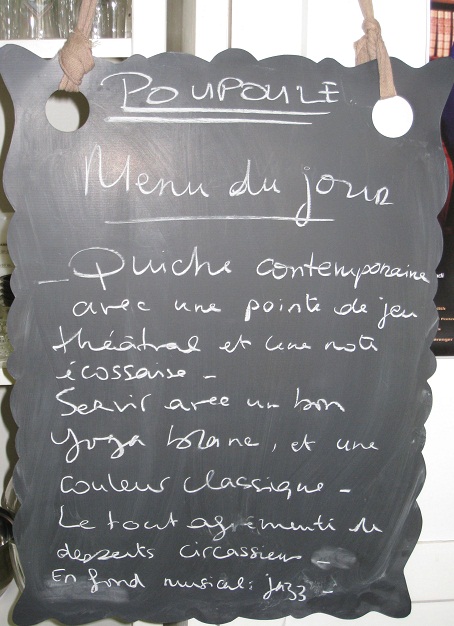 POUPOULE
Menu du jour
- Quiche contemporaine -
avec une pointe de jeu
théâtral et une note
écossaise -
Servir avec un bon
yoga blanc, et une
couleur classique -
Le tout agrémenté de
desserts circassiens
En fond musical : jazz -